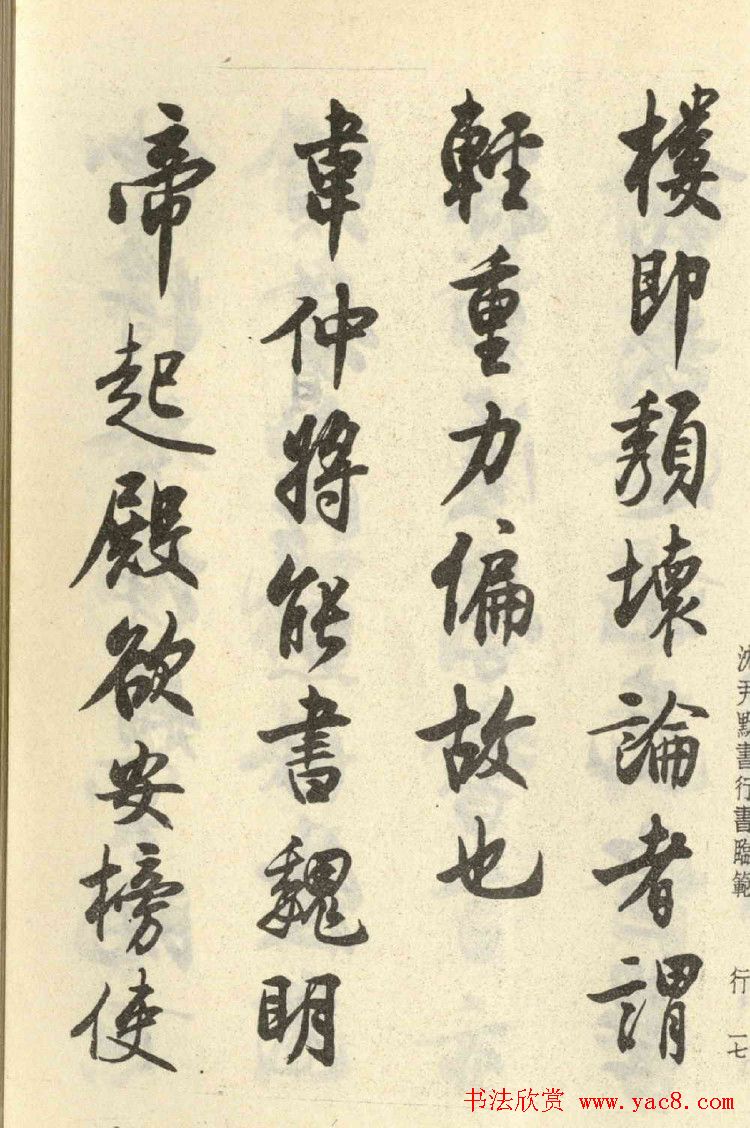 樓即頹壞論者謂
輕重力偏故也
韋仲將能書魏明
帝起殿欲安榜使
沈尹默書行書臨範
行 一七
书法欣赏 www.yac8.com